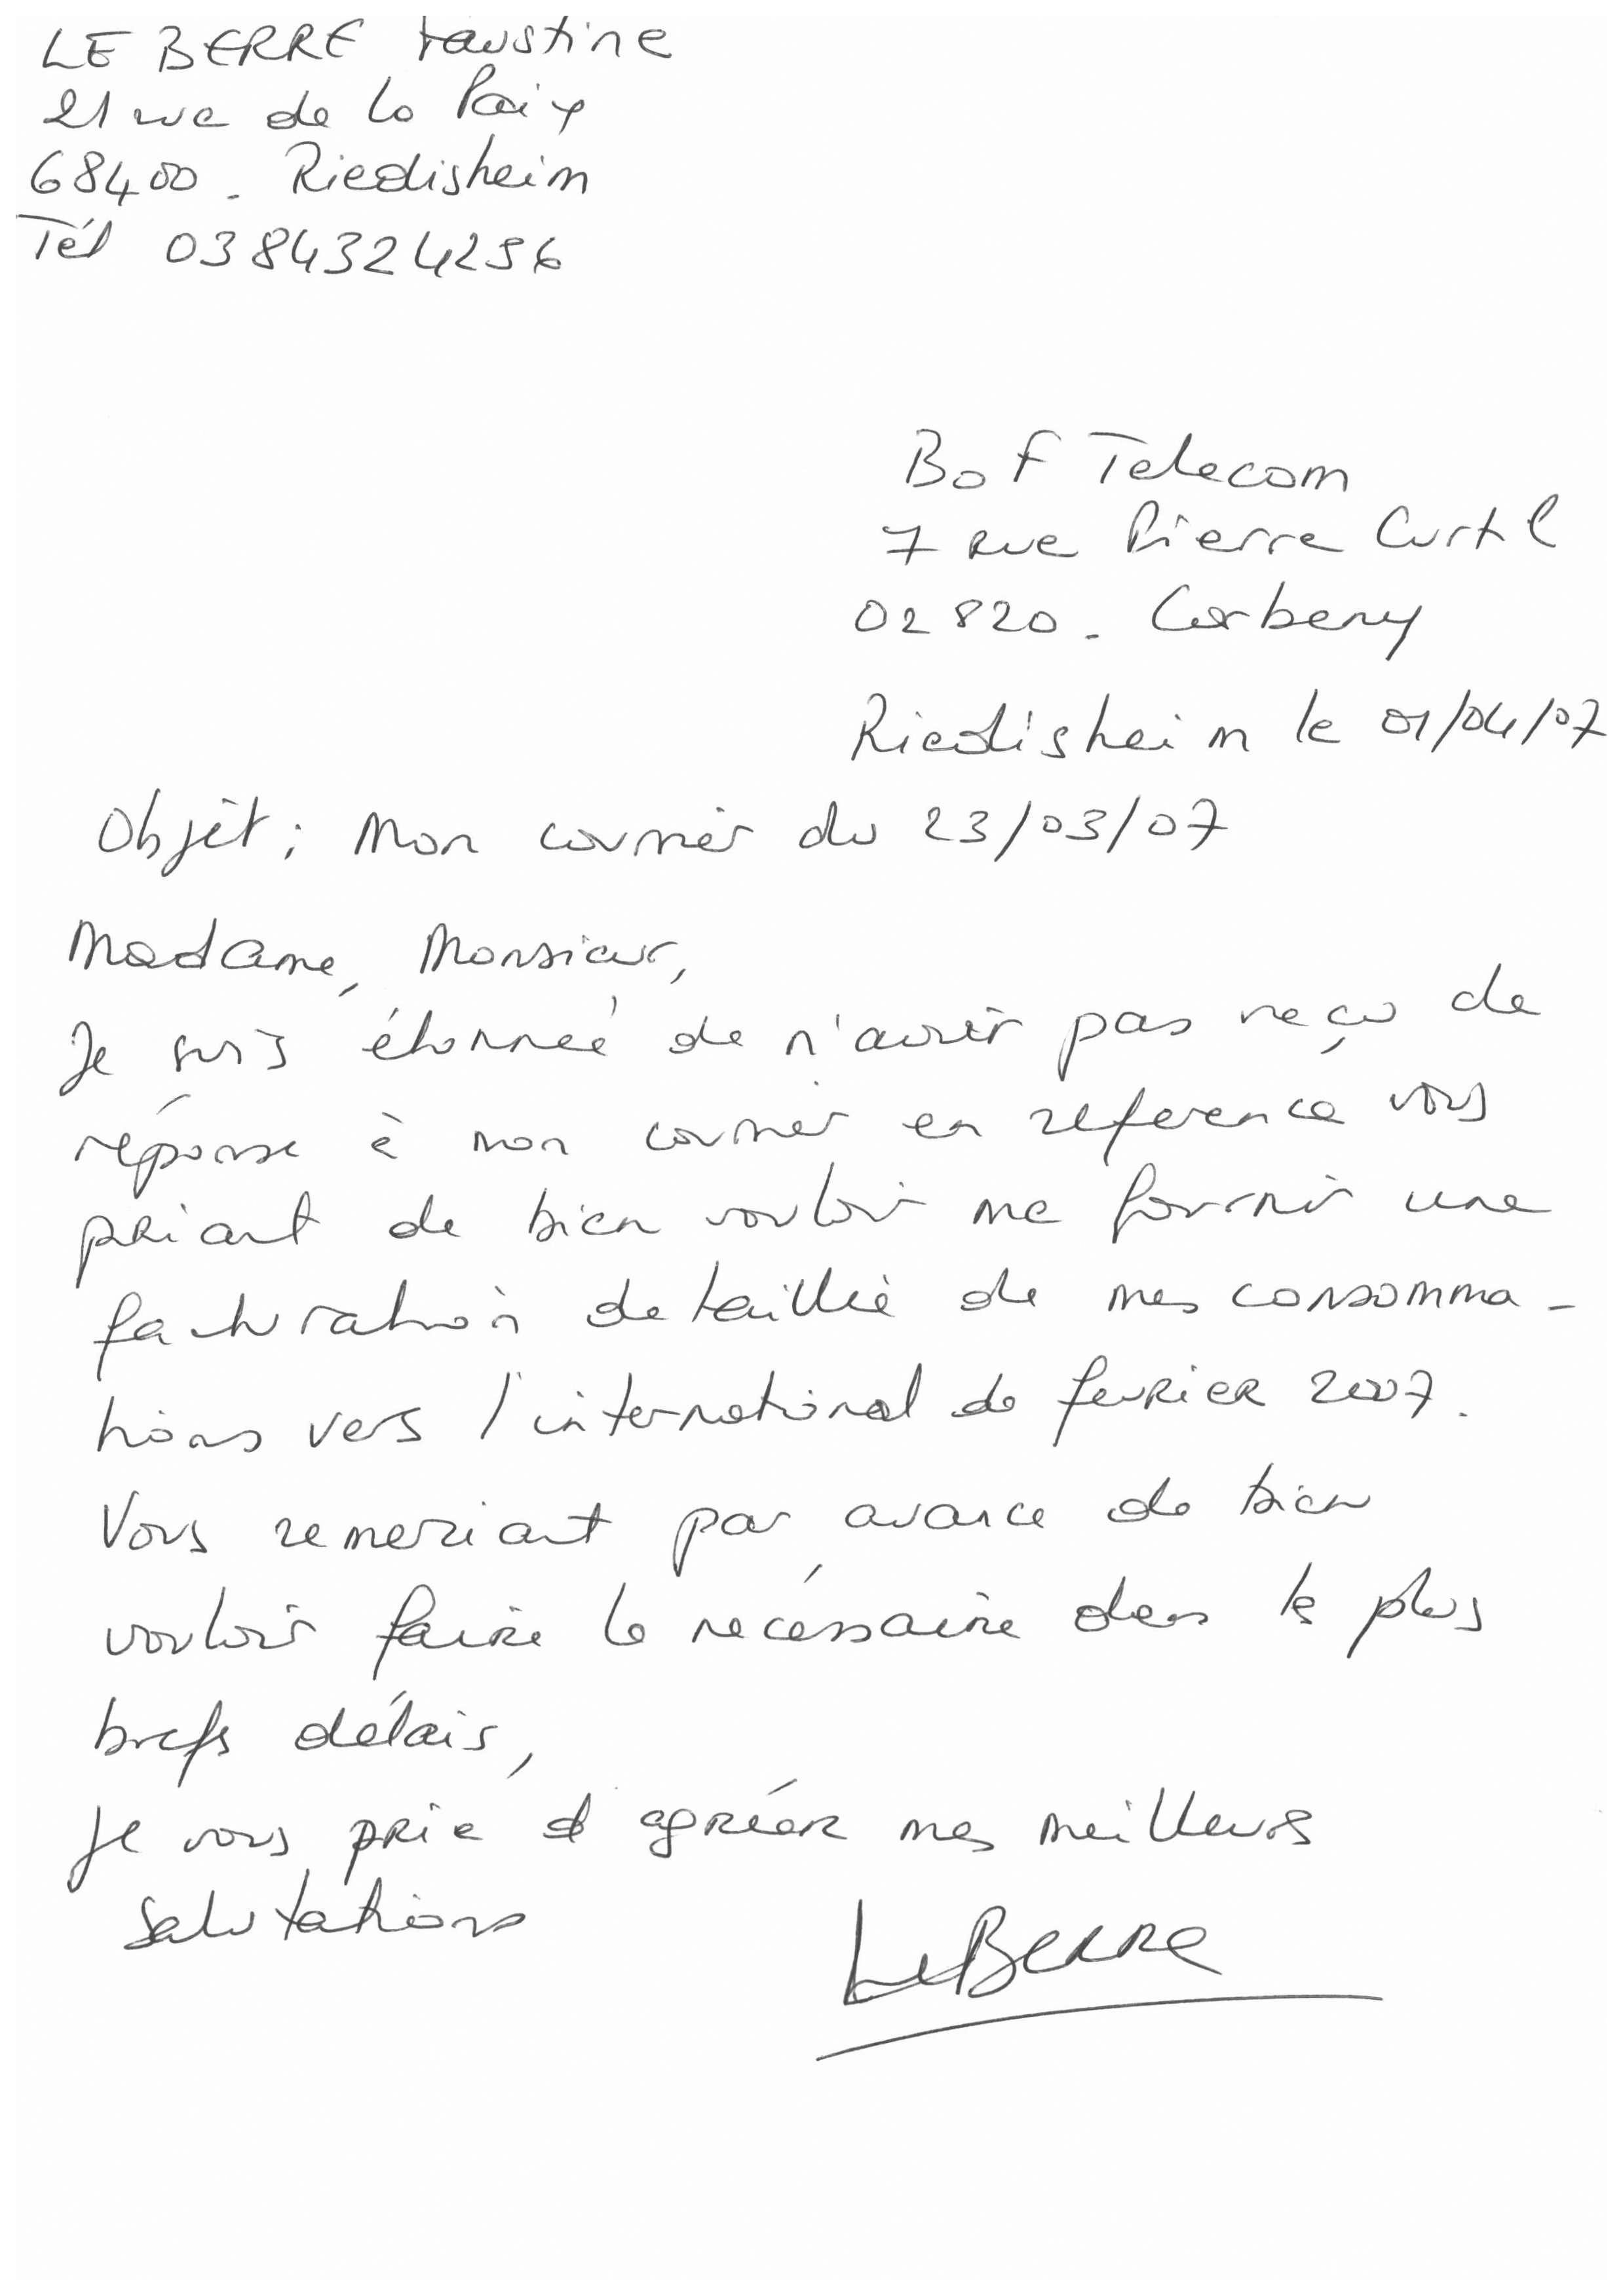 LE BERRE Faustine
21 rue de la Paix
68400 - Riedisheim
Tél 0384324256
Bof Telecom
7 Rue Pierre Curtil
02820 - Corbeny
Riedisheim le 01/04/07
Objet : Mon courrier du 23/03/07
Madame, Monsieur,
Je suis étonnée de n'avoir pas reçu de
réponse à mon courrier en reference vous
priant de bien vouloir me fournir une
facturation detaillée de mes consomma-
tions vers l'international de fevrier 2007.
Vous remerciant par avance de bien
vouloir faire le necéssaire dans les plus
brefs délais,
Je vous prie d'agréer mes meilleurs
salutations
LeBerre